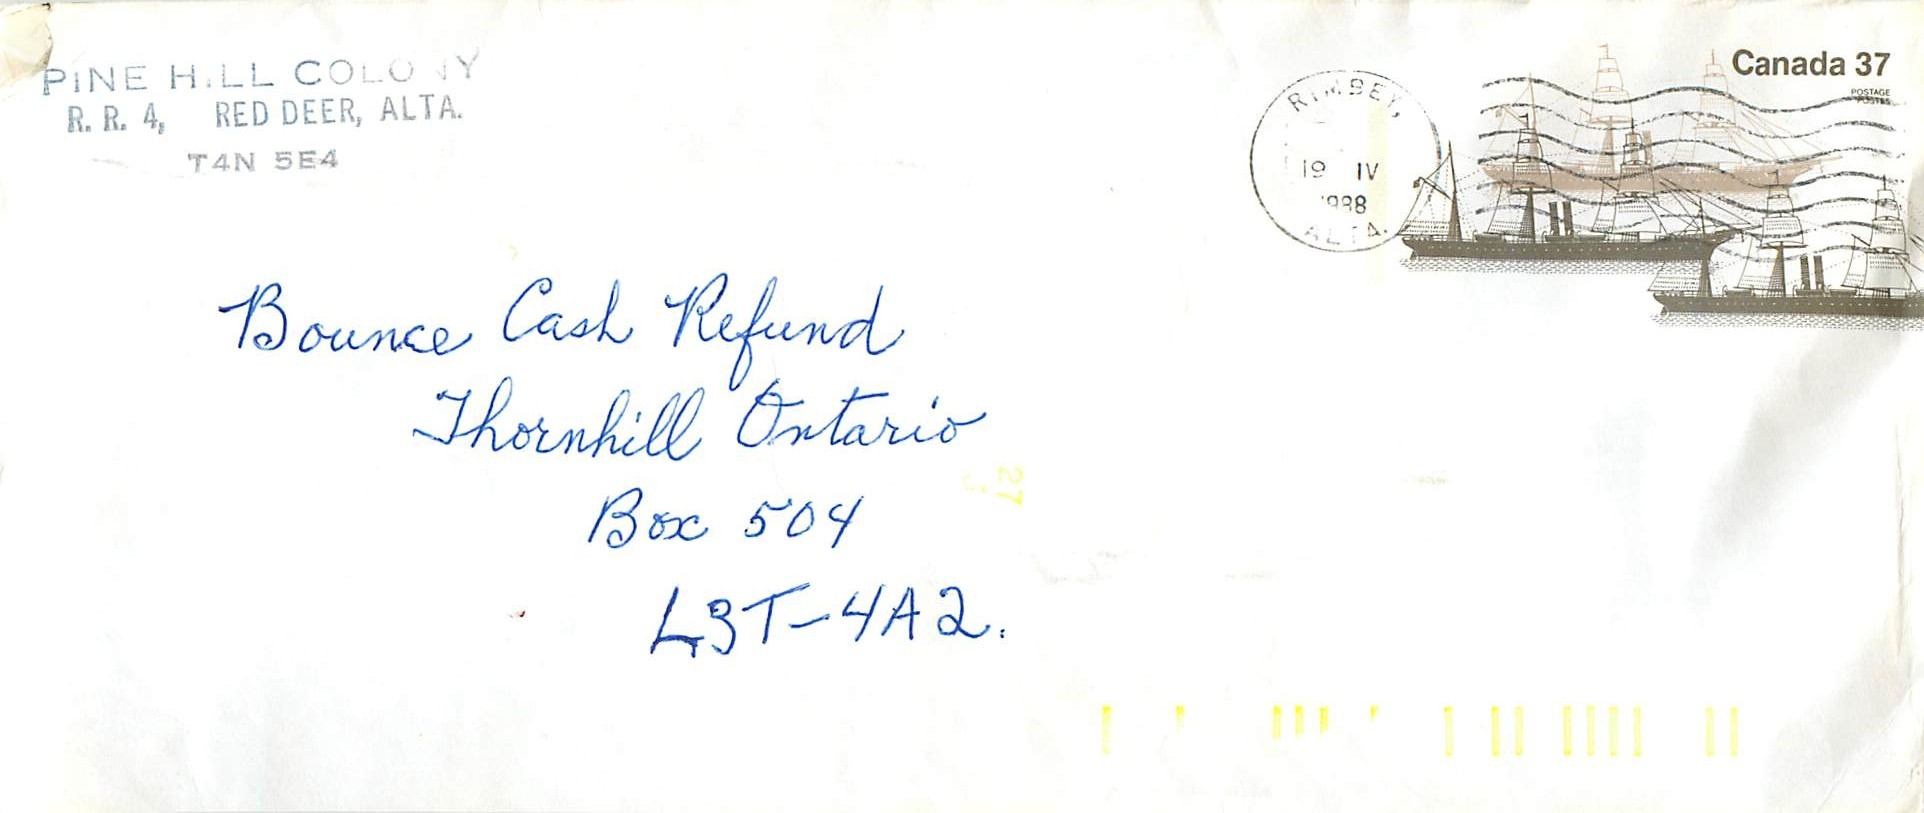 PINE HILL COLONY
R. R. 4, RED DEER, ALTA.
T4N 5E4
RIMBEY,
19 IV
1988
ALTA.
Canada 37
POSTAGE
POSTES
Bounce Cash Refund
Thornhill Ontario
Box 504
L3T-4A2.
27